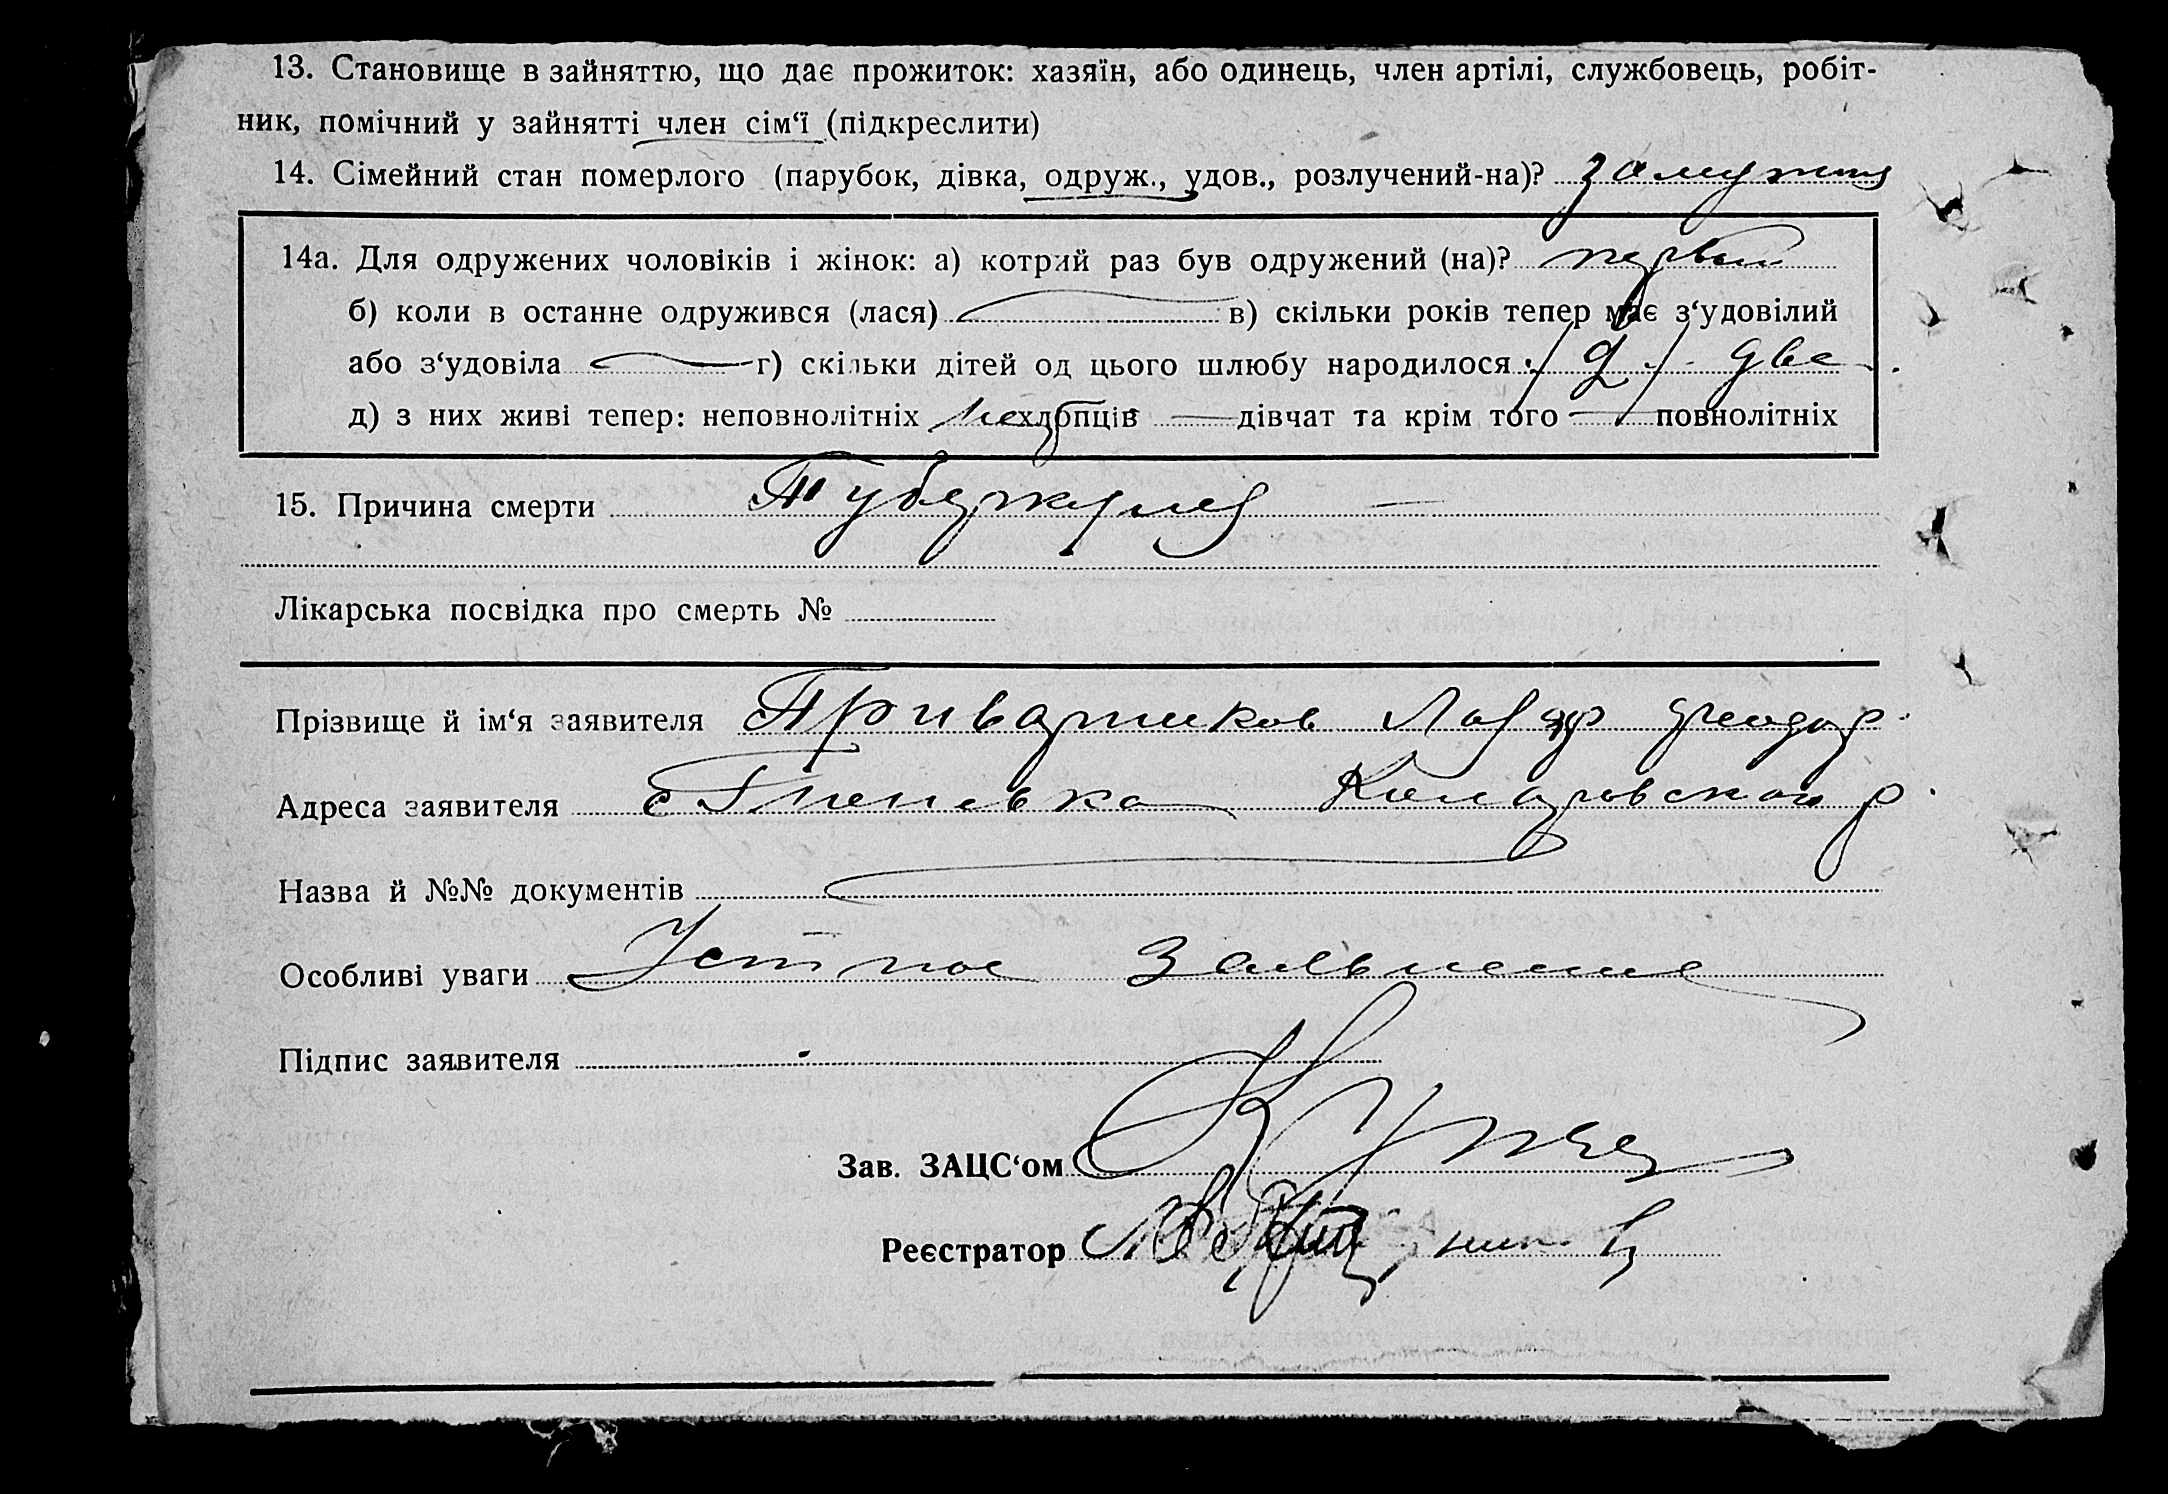 13. Становище в зайняттю, що дає прожиток: хазяїн, або одинець, член артілі, службовець, робіт-
ник, помічний у зайнятті член сім‘ї (підкреслити)
14. Сімейний стан померлого (парубок, дівка, одруж., удов., розлучений-на)? замужня
14а. Для одружених чоловіків і жінок: а) котрий раз був одружений (на)? первый
б) коли в останне одружився (лася) в) скільки років тепер має з‘удовілий
або з‘удовіла г) скільки дітей од цього шлюбу народилося /2/ две
д) з них живі тепер: неповнолітніх хлопців дівчат та крім того повнолітніх
15. Причина смерти Туберкулез
Лікарська посвідка про смерть №
Прізвище й ім‘я заявителя Приварников Лазар
Адреса заявителя с Гненевка Комаровского р.
Назва й №№ документів
Особливі уваги Устное Заявление
Підпис заявителя
Зав. ЗАЦС‘ом
Реєстратор